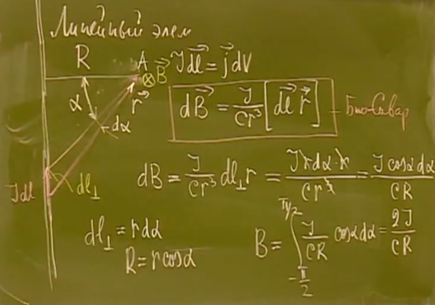 Линейный элем
R A
⊗ \vec{B} J\vec{dl} = \vec{j}dV
α \vec{r}
dα
\vec{dB} = \frac{J}{cr^3}[\vec{dl} \vec{r}] – Био-Савар
Jdl dl⊥
dB = \frac{J}{cr^3} dl⊥ r = \frac{J r dα · r}{cr^3} = \frac{J cosα dα}{cR}
dl⊥ = rdα
R = r cosα
B = \int_{-\frac{π}{2}}^{π/2} \frac{J}{cR} cosα dα = \frac{2J}{cR}